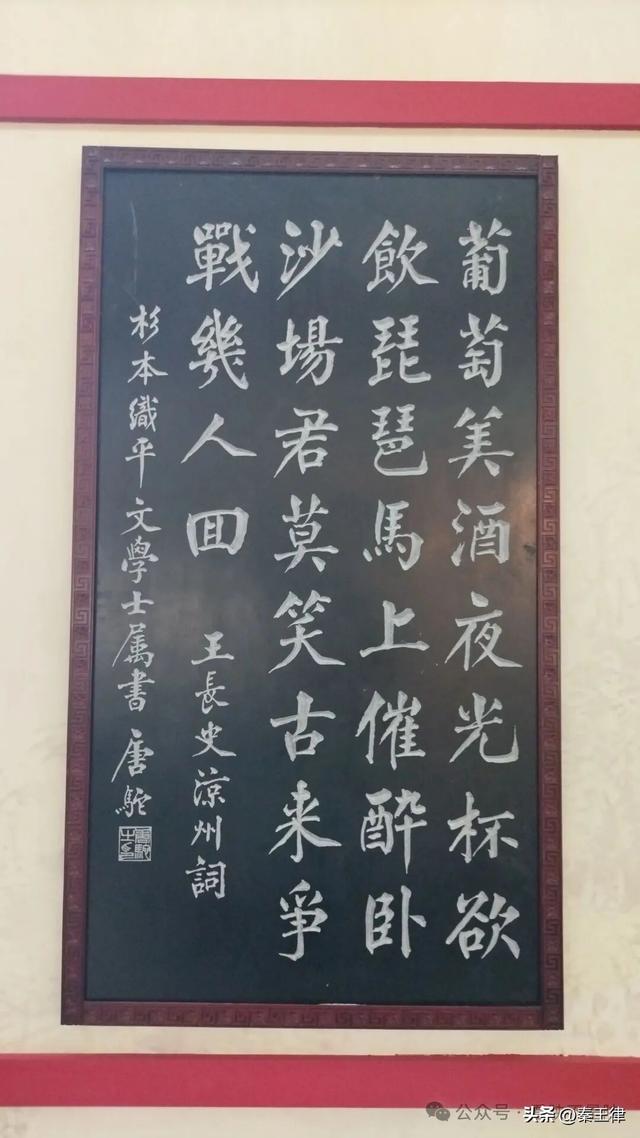 葡萄美酒夜光杯欲
飲琵琶馬上催醉卧
沙場君莫笑古来爭
戰幾人回
王長史涼州詞
杉本織平文學士属書 唐駝
公众号
头条 @秦王律